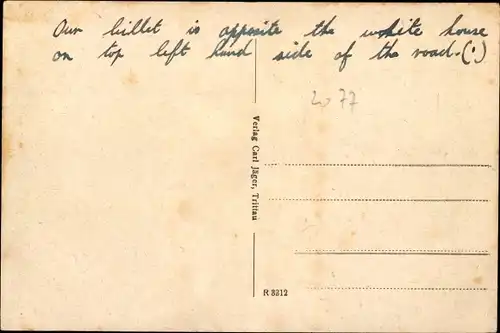 Our billet is opposite the white house
on top left hand side of the road.(!)
20 77
Verlag Carl Jäger, Trittau
R 8312